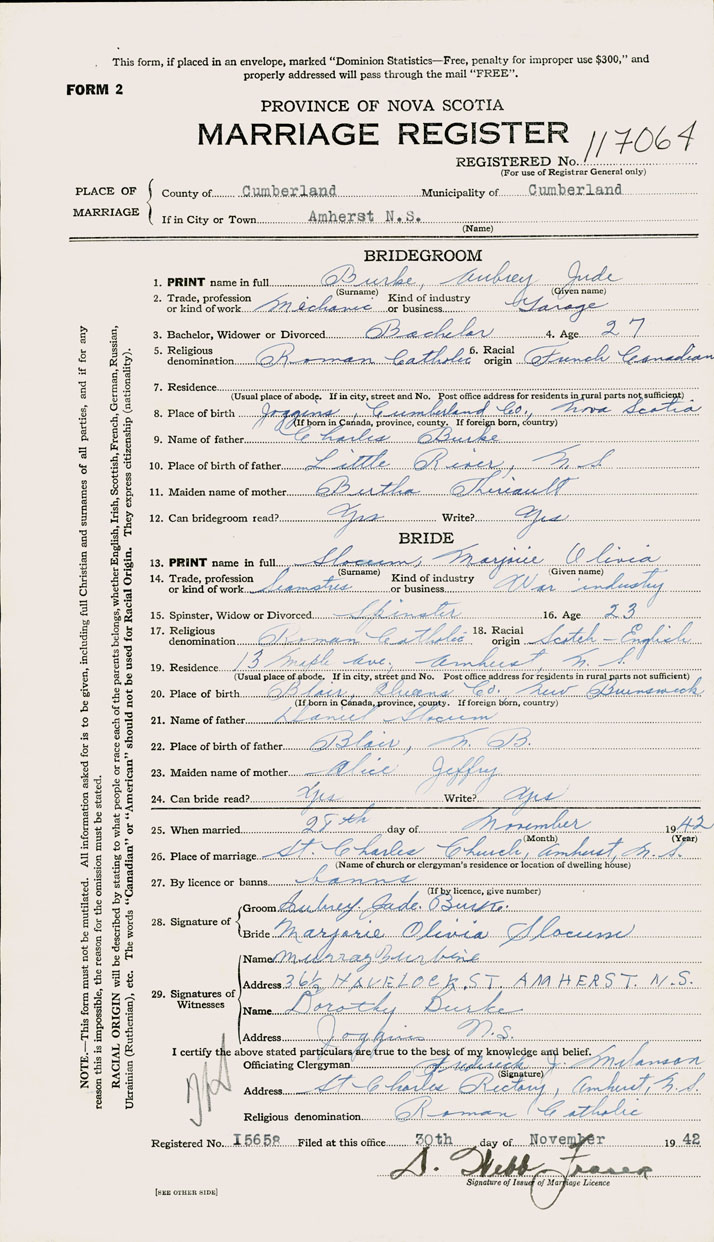 This form, if placed in an envelope, marked "Dominion Statistics—Free, penalty for improper use $300," and
properly addressed will pass through the mail "FREE".
FORM 2
PROVINCE OF NOVA SCOTIA
MARRIAGE REGISTER
REGISTERED No. 117064
(For use of Registrar General only)
PLACE OF MARRIAGE
County of Cumberland Municipality of Cumberland
If in City or Town Amherst N.S.
(Name)
BRIDEGROOM
1. PRINT name in full Burke, Aubrey Jude
(Surname) (Given name)
2. Trade, profession or kind of work Mechanic Kind of industry or business Garage
3. Bachelor, Widower or Divorced Bachelor 4. Age 27
5. Religious denomination Roman Catholic 6. Racial origin French Canadian
7. Residence
(Usual place of abode. If in city, street and No. Post office address for residents in rural parts not sufficient)
8. Place of birth Joggins, Cumberland Co., Nova Scotia
(If born in Canada, province, county. If foreign born, country)
9. Name of father Charles Burke
10. Place of birth of father Little River, N.S.
11. Maiden name of mother Bertha Thiriault
12. Can bridegroom read? Yes Write? Yes
BRIDE
13. PRINT name in full Slocum, Marjorie Olivia
(Surname) (Given name)
14. Trade, profession or kind of work Seamstres Kind of industry or business War industry
15. Spinster, Widow or Divorced Spinster 16. Age 23
17. Religious denomination Roman Catholic 18. Racial origin Scotch-English
19. Residence 13 Maple ave. Amherst, N.S.
(Usual place of abode. If in city, street and No. Post office address for residents in rural parts not sufficient)
20. Place of birth Blair, Co. New Brunswick
(If born in Canada, province, county. If foreign born, country)
21. Name of father Daniel Slocum
22. Place of birth of father Blair, N.B.
23. Maiden name of mother Alice Jeffry
24. Can bride read? Yes Write? Yes
25. When married 28th day of November 1942
(Month) (Year)
26. Place of marriage St Charles Church, Amherst, N.S.
(Name of church or clergyman's residence or location of dwelling house)
27. By licence or banns banns
(If by licence, give number)
28. Signature of Groom Aubrey Jude Burke.
Bride Marjorie Olivia Slocum
29. Signatures of Witnesses
Name Murray
Address 36½ HAVELOCK ST. AMHERST. N.S.
Name Dorothy Burke
Address Joggins N.S.
I certify the above stated particulars are true to the best of my knowledge and belief.
Officiating Clergyman Frederick J. Melanson
(Signature)
Address St Charles Rectory, Amherst, N.S.
Religious denomination Roman Catholic
Registered No. I5658 Filed at this office 30th day of November 1942
D. Webb Fraser
Signature of Issuer of Marriage Licence
[SEE OTHER SIDE]
NOTE.—This form must not be mutilated. All information asked for is to be given, including full Christian and surnames of all parties, and if for any
reason this is impossible, the reason for the omission must be stated.
RACIAL ORIGIN will be described by stating to what people or race each of the parents belongs, whether English, Irish, Scottish, French, German, Russian,
Ukrainian (Ruthenian), etc. The words "Canadian" or "American" should not be used for Racial Origin. They express citizenship (nationality).